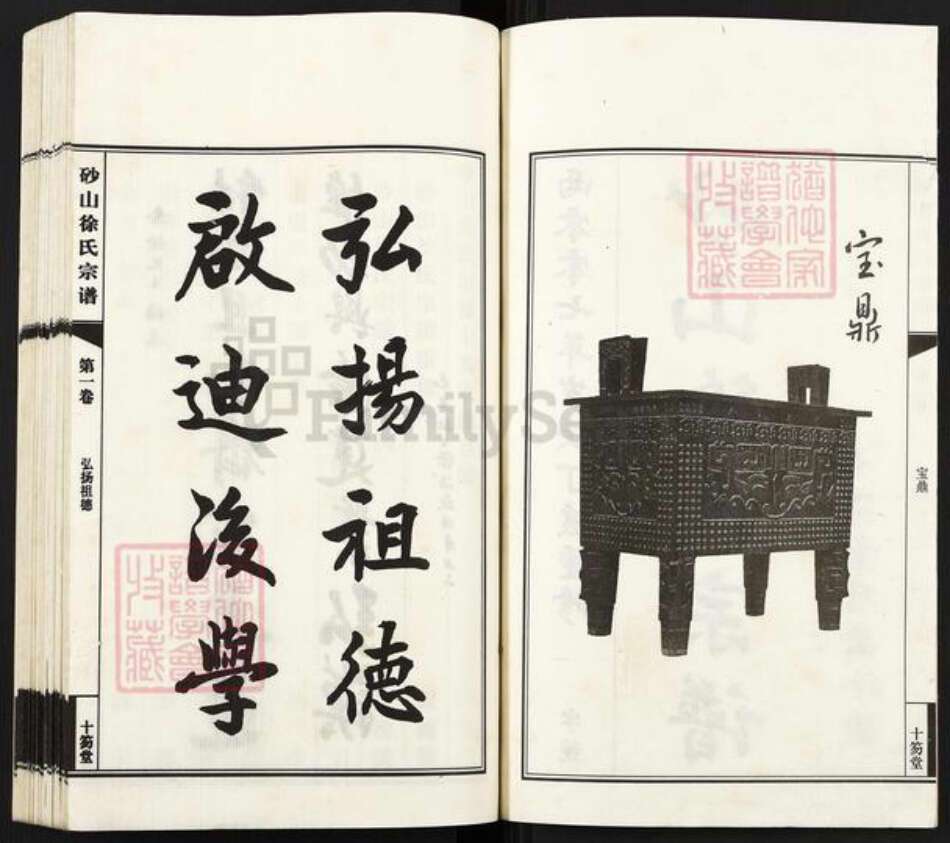 宝鼎
宝鼎
十笏堂
弘揚祖德
啟迪後學
砂山徐氏宗谱
第一卷
弘扬祖德
十笏堂
FamilySe
譜學會
收藏
譜學會
收藏